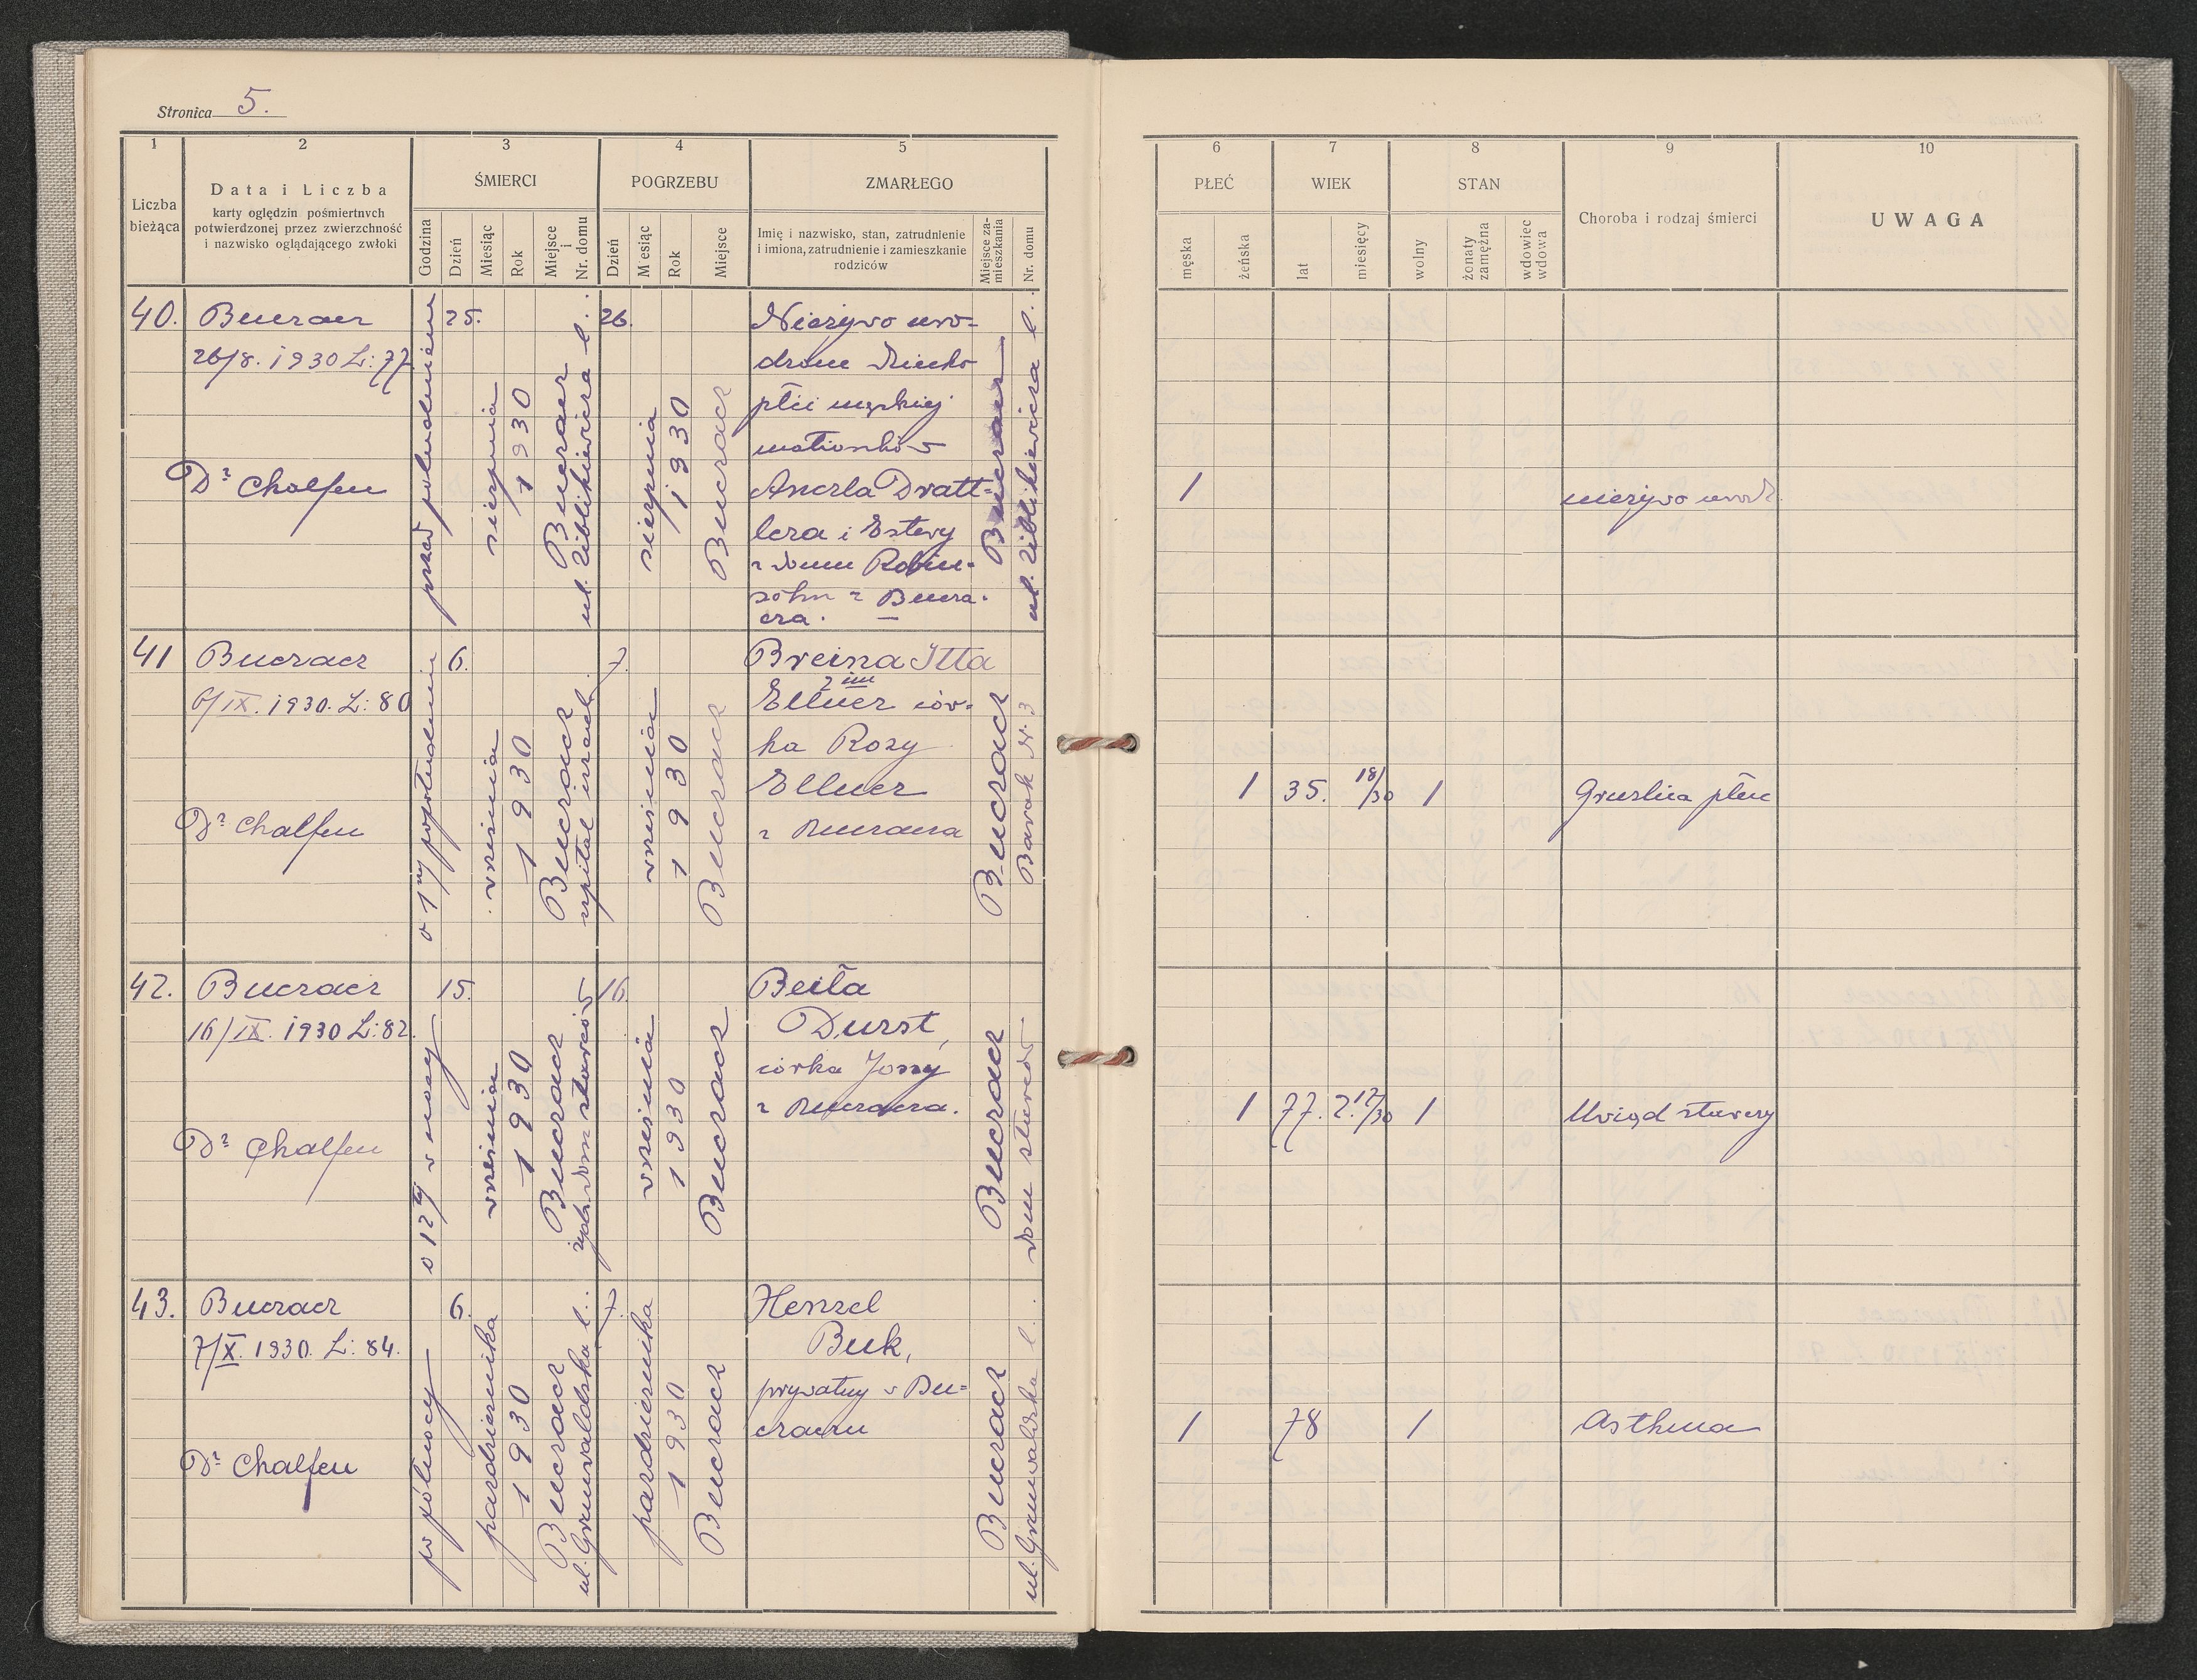 Stronica 5.
1 2 3 4 5
Liczba bieżąca
Data i Liczba
karty oględzin pośmiertnych
potwierdzonej przez zwierzchność
i nazwisko oglądającego zwłoki
ŚMIERCI
Godzina
Dzień
Miesiąc
Rok
Miejsce i Nr. domu
POGRZEBU
Dzień
M esiąc
Rok
Miejsce
ZMARŁEGO
Imię i nazwisko, stan, zatrudnienie
i imiona, zatrudnienie i zamieszkanie
rodziców
Miejsce za-
mieszkania
Nr. domu
6 7 8 9 10
PŁEĆ
męska
żeńska
WIEK
lat
miesięcy
STAN
wolny
żonaty
zamężna
wdowiec
wdowa
Choroba i rodzaj śmierci
UWAGA
40.
Buczacz
26/8. 1930 L: 77
Dr Chalfen
przed południem
25.
sierpnia
1930
Buczacz
ul. Ziblikiewicza l.
26.
sierpnia
1930
Buczacz
Nieżywo uro-
dzone dziecko
płci męskiej
małżonków
Anczla Dratt-
lera i Estery
z domu Robin-
sohn z Bucza-
cza.
Buczacz
ul. Ziblikiewicza l.
1
nieżywo urodz.
41
Buczacz
6/IX. 1930. L: 80
Dr Chalfen
o 1ej popołudniu
6.
września
1930
Buczacz
szpital izrael.
7.
września
1930
Buczacz
Breina Itta
2 im
Ellner cór-
ka Rozy
Ellner
z Buczacza
Buczacz
Barak N. 3
1
35. 18/30
1
Gruźlica płuc
42.
Buczacz
16/IX. 1930 L: 82.
Dr Chalfen
o 12tej w nocy
15.
września
1930
Buczacz
żydz. dom starców
16.
września
1930
Buczacz
Beiła
Durst,
córka Jony
z Buczacza.
Buczacz
dom starców.
1
77. 2. 17/30
1
Uwiąd starczy
43.
Buczacz
7/X. 1930. L: 84.
Dr Chalfen
po północy
6.
października
1930
Buczacz
ul. Grunwaldska l.
7.
października
1930
Buczacz
Henzel
Buk,
prywatny w Bu-
czaczu
Buczacz
ul. Grunwaldska l.
1
78
1
Asthma